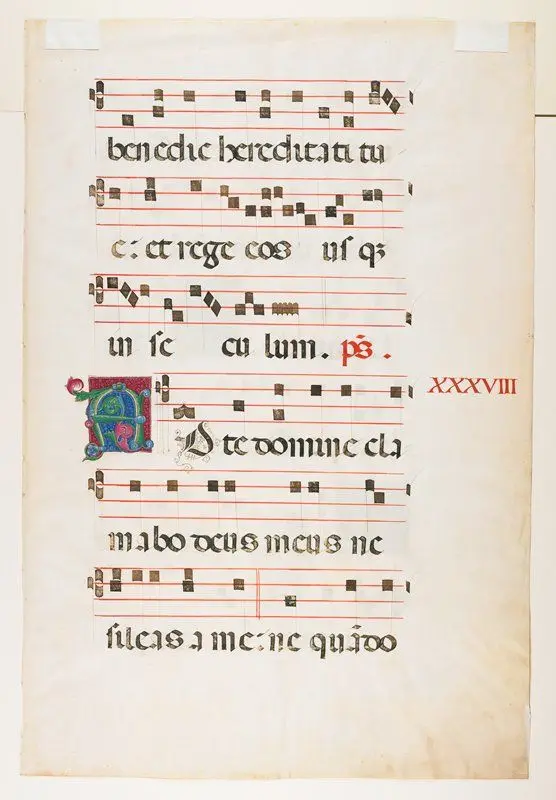 benedic hereditati tu
e: et rege eos usqꝫ
in seculum. p̄s.
XXXVIII
AD te domine cla
mabo deus meus ne
sileas a me: ne quādo